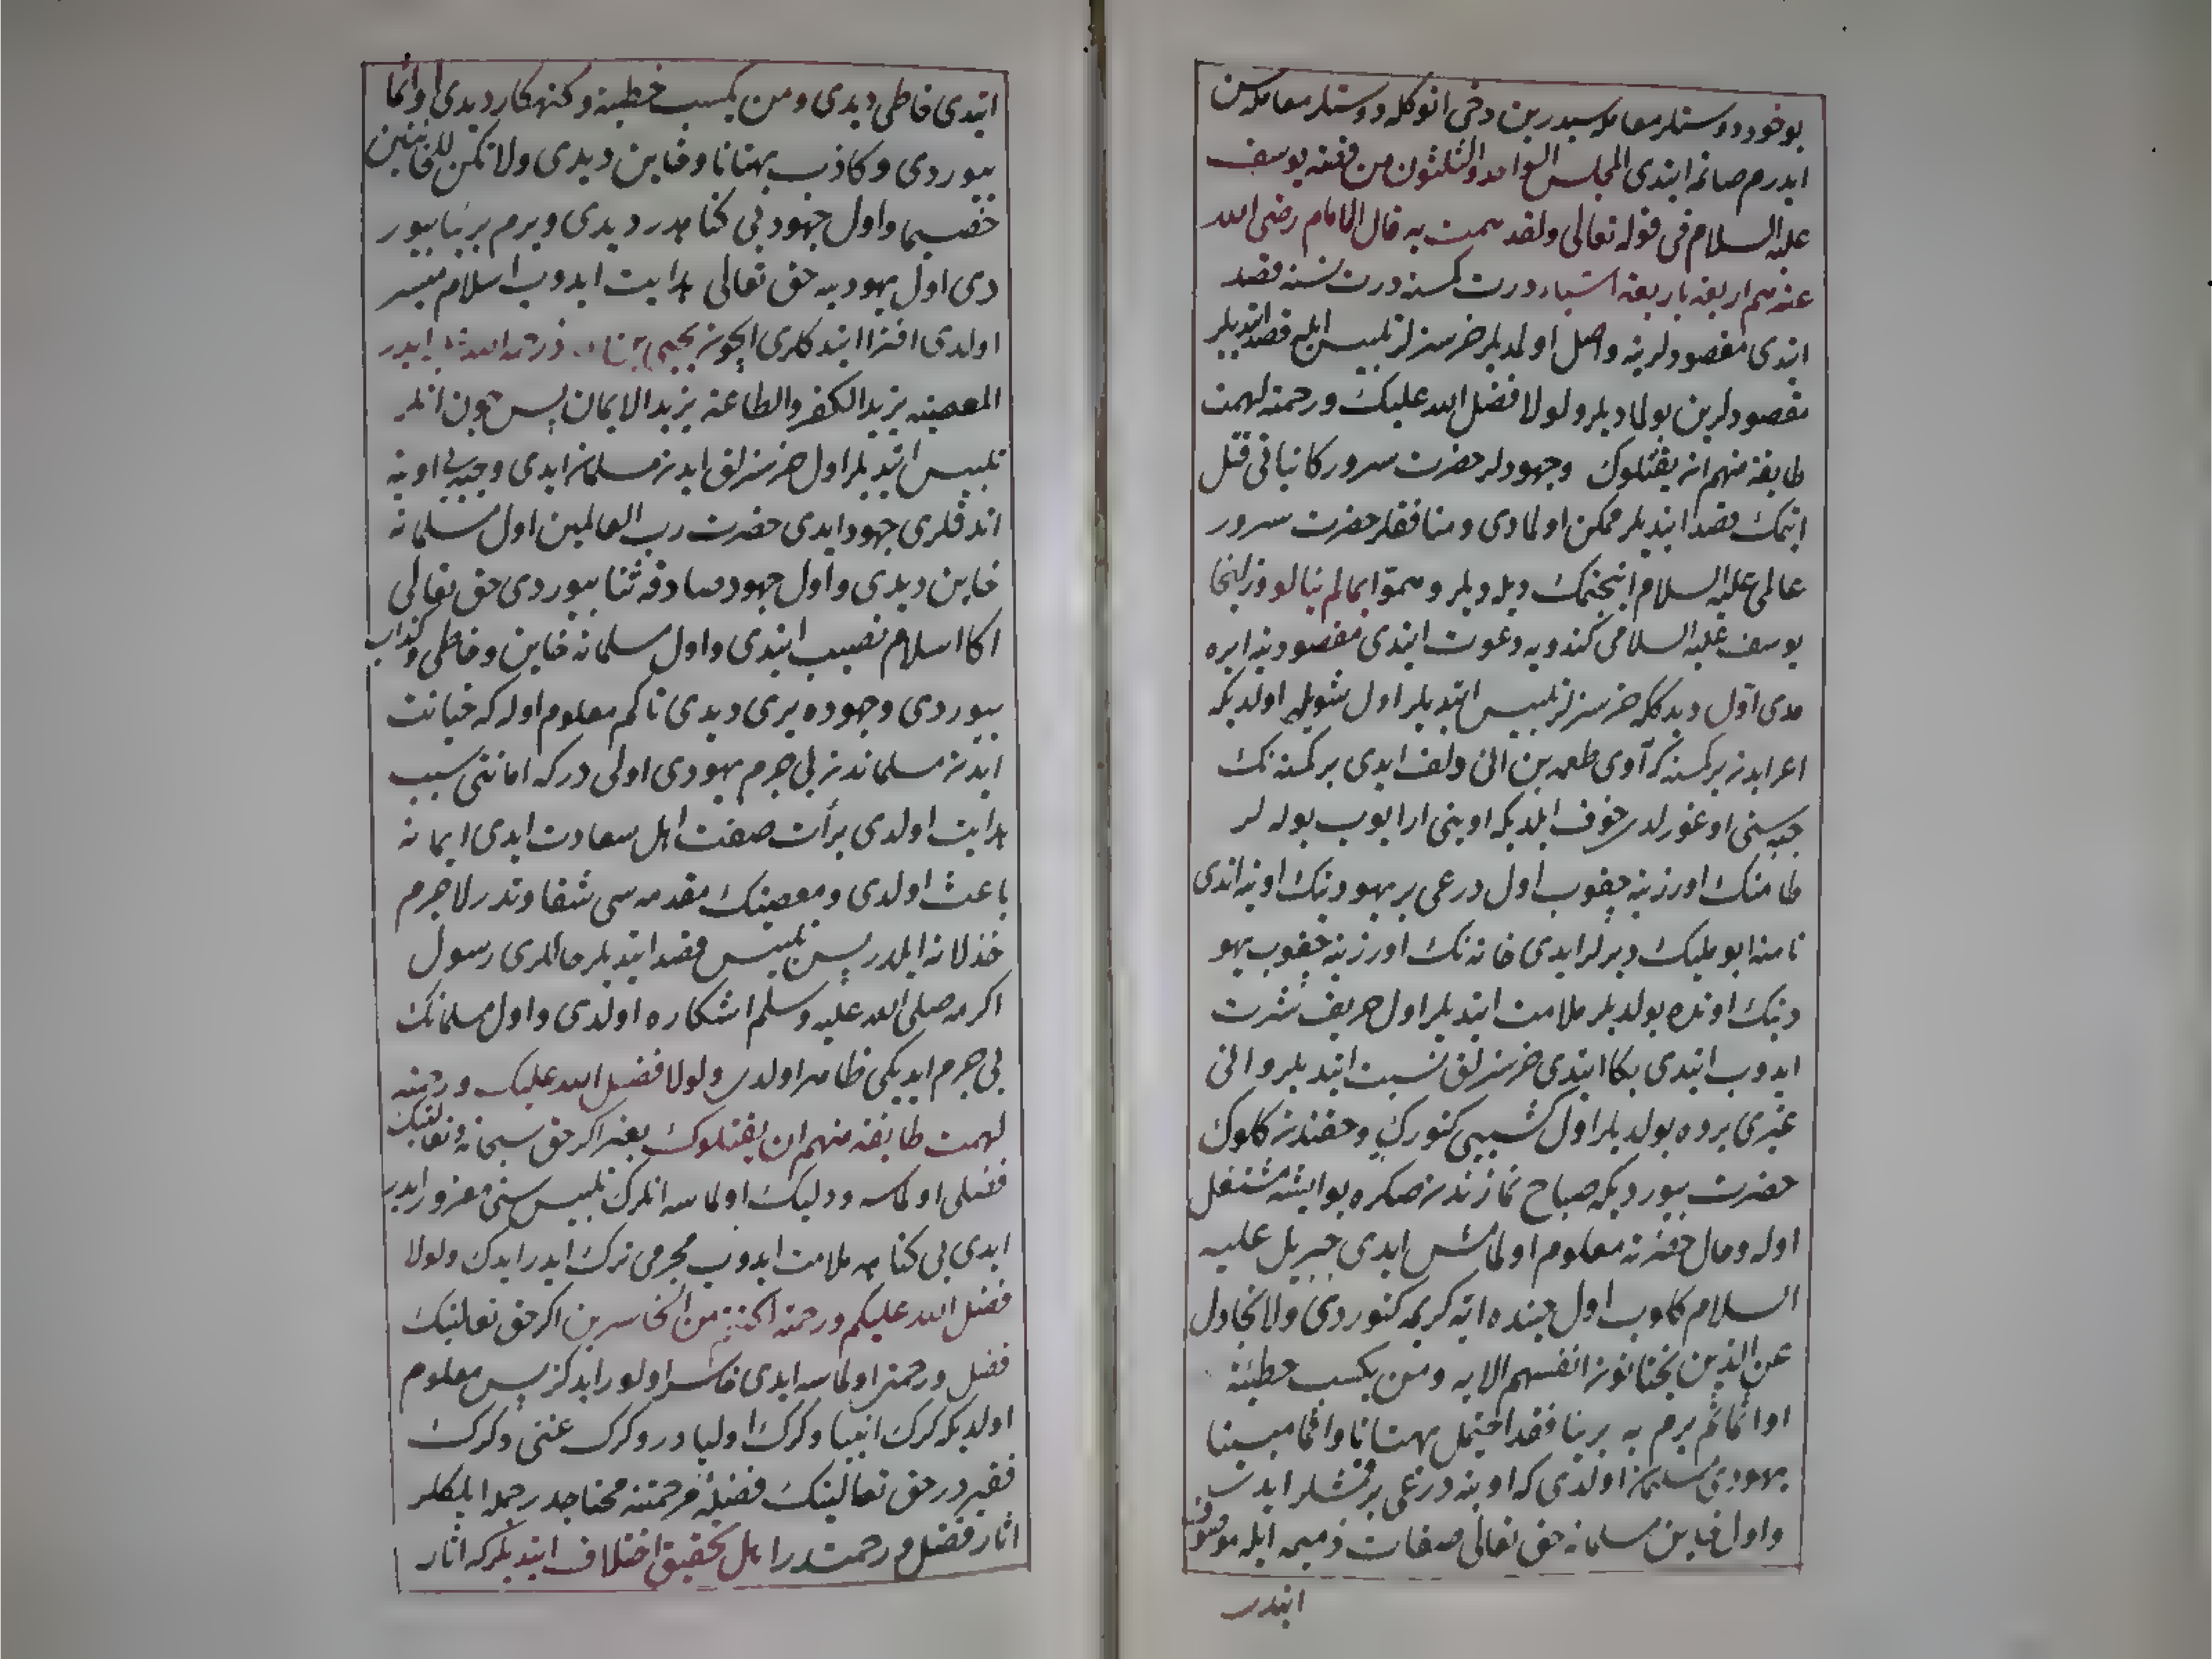 بو خود دوستلر معامله سیدر بن دخی انوكله دوستلر معامله سن
ایدرم صانه ایتدی المجلس الواحد والثلثون من قصه یوسف
علیه السلام فی قوله تعالی ولقد همت به قال الامام رضی الله
عنه هم اربعة باربعة اشیاء درت كسنه درت نسنه قصد
ایتدی مقصودلرینه واصل اولمدیلر خرسزلر تلبیس ایله قصد ایتدیلر
مقصودلرین بولمادیلر ولولا فضل الله علیك ورحمته لهمت
طایفة منهم ان یقتلوك وجهودلر حضرت سرور كائناتی قتل
ایتمك قصد ایتدیلر ممكن اولمادی ومنافقلر حضرت سرور
عالمی علیه السلام انجتمك دیلدیلر وهموا بمالم ینالوا وزلیخا
یوسف علیه السلامی كندویه دعوت ایتدی مقصودینه ایره
مدی اول دیدكلكه خرسزلر تلبیس ایتدیلر اول شویله اولدیكه
اعرابدن بر كسنه كه آدی طعمه بن ابی ولف ایدی بر كسنه نك
جبه سنی اوغورلدی خوف ایلدیكه اوینی ارایوب بوله لر
طامنك اوزرینه چقوب اول درعی بر یهودینك اوینه اتدی
نامنه ابو ملیك دیرلر ایدی خانه نك اوزرینه چقوب یهو
دینك اونده بولدیلر ملامت ایتدیلر اول حریف شرت
ایدوب ایتدی بكا ایتدی خرسزلق نسبت ایتدیلر وانی
غیری یرده بولدیلر اول كشییی كتورك وحقندن كلوك
حضرت بیوردیكه صباح نمازندن صكره بو ایشه مشتغل
اوله وحال حضرته معلوم اولمامش ایدی جبریل علیه
السلام كلوب اول حینده ایة كریمه كتوردی ولا تجادل
عن الذین یختانون انفسهم الایه ومن یكسب خطیئة
او اثما ثم یرم به بریئا فقد احتمل بهتانا واثما مبینا
یهودی مسلمان اولدی كه اوینه درعی بر قشلر ایدی
واول خاین مسلمانه حق تعالی صفات ذمیمه ایله موصوف
ایتدی
ایتدی خاطی دیدی ومن یكسب خطیئة وكنهكار دیدی او اثما
بیوردی وكاذب بهتانا وخاین دیدی ولا تكن للخائنین
خصیما واول جهود بی كناهدر دیدی ویرم بریئا بیور
دی اول یهودیه حق تعالی هدایت ایدوب اسلام میسر
اولدی افترا ایتدكلری ایچون یحیی بن معاذ رحمة الله علیه ایدر
المعصیة یزید الكفر والطاعة یزید الایمان پس چون انلر
تلبیس ایتدیلر اول خرسزلق ایدن مسلمان ایدی وجبه یی اوینه
اتدقلری جهود ایدی حضرت رب العالمین اول مسلمانه
خاین دیدی واول جهود صادقه ثنا بیوردی حق تعالی
اكا اسلام نصیب ایتدی واول مسلمانه خاین وخاطی وكذاب
بیوردی وجهوده بری دیدی تاكم معلوم اوله كه خیانت
ایدن مسلماندن بی جرم یهودی اولی در كه امانتی سبب
هدایت اولدی برأت صفت اهل سعادت ایدی ایمانه
باعث اولدی ومعصیتك مقدمه سی شقاوتدر لاجرم
خذلانه ایلدر پس تلبیس قصد ایتدیلر حاللری رسول
اكرمه صلی الله علیه وسلم اشكاره اولدی واول مسلمانك
بی جرم ایدیكی ظاهر اولدی ولولا فضل الله علیك ورحمته
لهمت طایفة منهم ان یقتلوك یعنی اكر حق سبحانه وتعالینك
فضلی اولماسه ودلیك اولماسه انلرك تلبیس سنی مغرور ایدر
ایدی بی كناهه ملامت ایدوب مجرمی ترك ایدر ایدك ولولا
فضل الله علیكم ورحمته لكنتم من الخاسرین اكر حق تعالینك
فضل ورحمتی اولماسه ایدی خاسر اولور ایدكز پس معلوم
اولدیكه كرك انبیا وكرك اولیا در وكرك غنی وكرك
فقیر در حق تعالینك فضلنه ورحمتنه محتاجدر جمله ایلكلر
اثار فضل ورحمتدر اهل تحقیق اختلاف ایتدیلر كه اثار